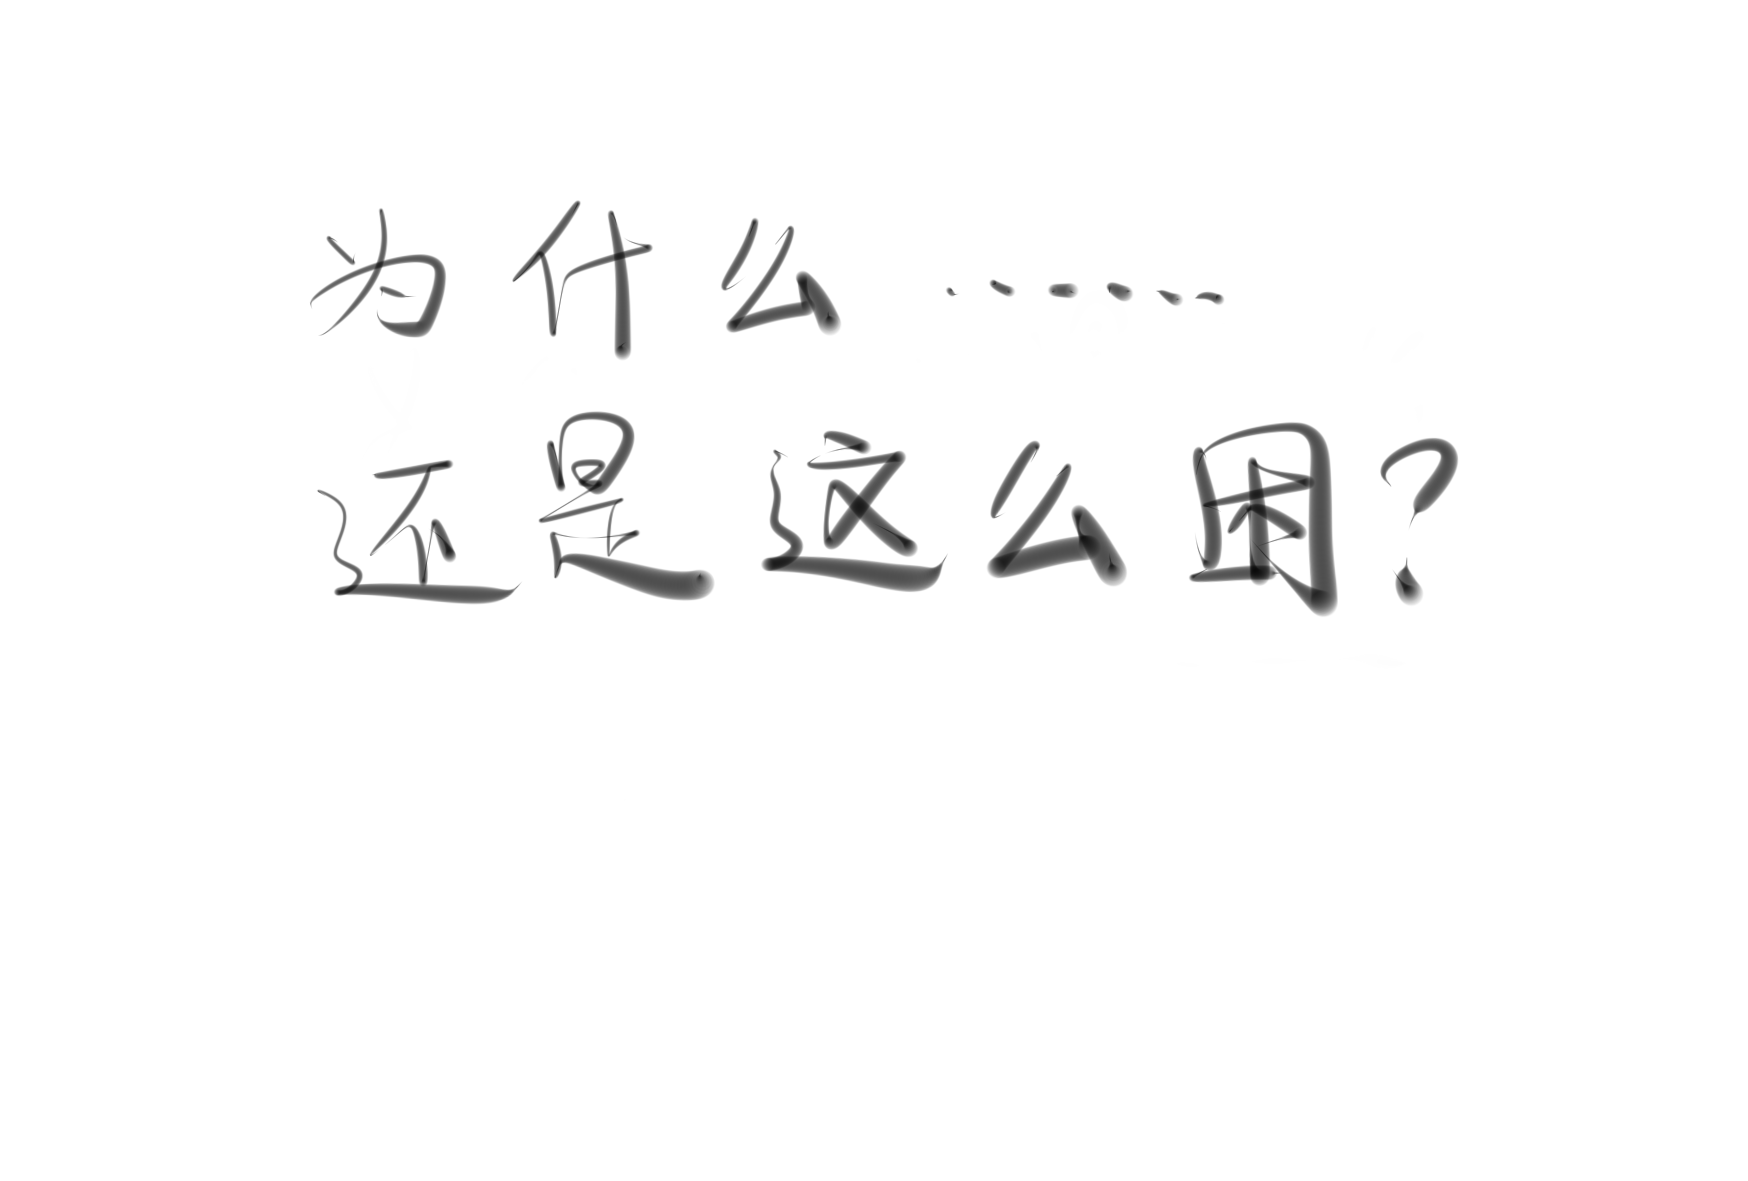 为什么……
还是这么困?